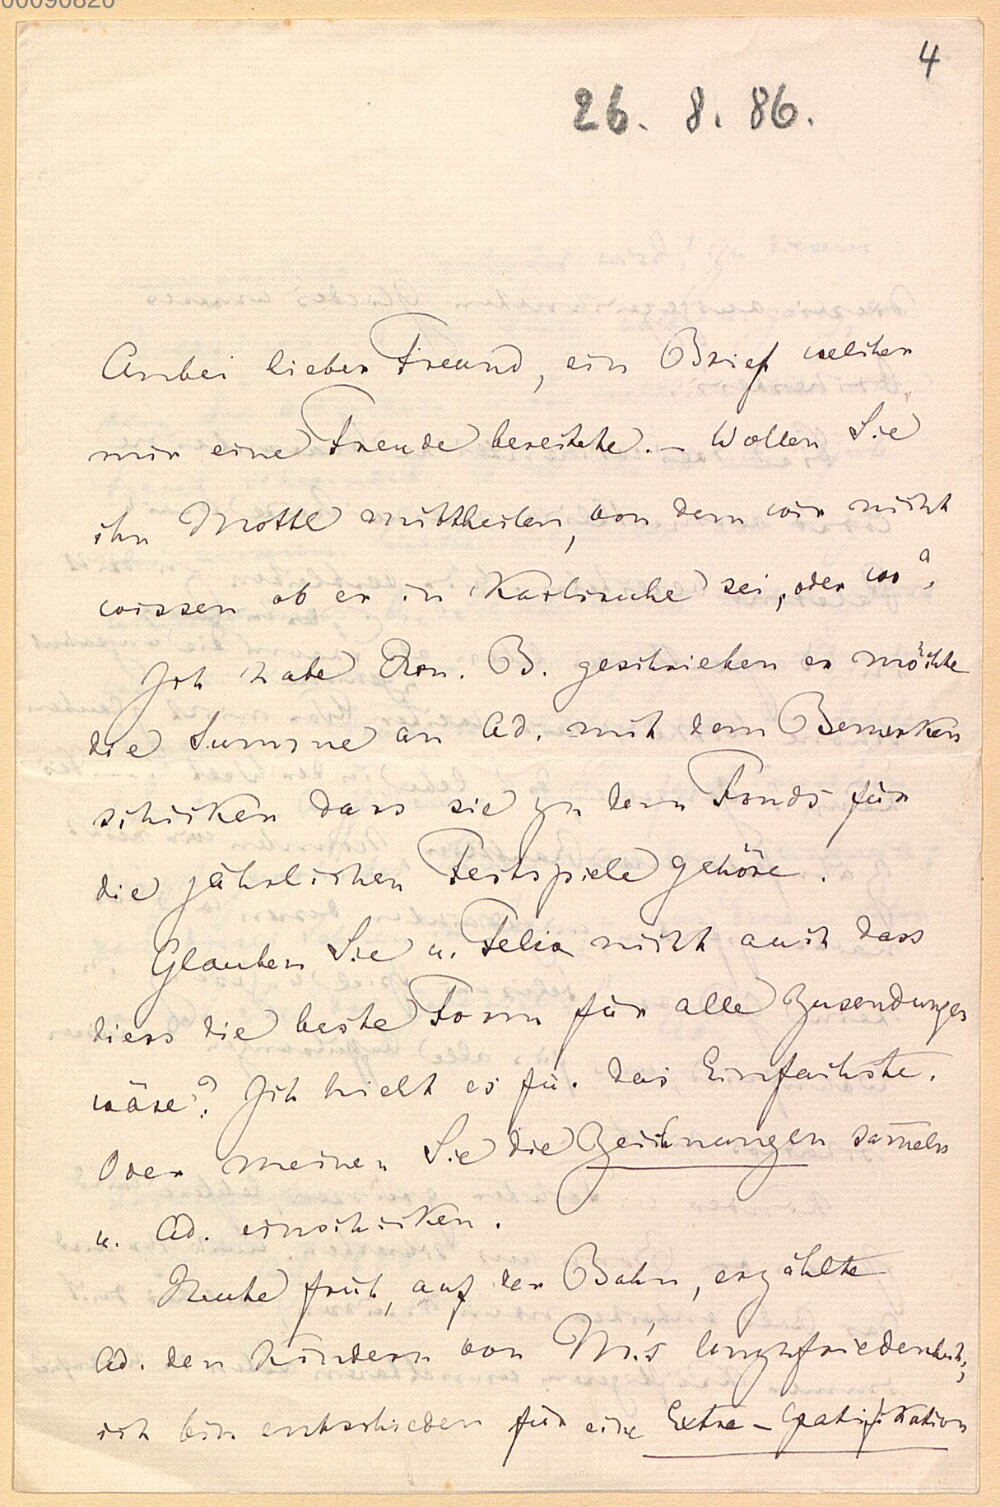 00090820
4
26. 8. 86.
Anbei lieber Freund, ein Brief welcher
mir eine Freude bereitete. – Wollen Sie
ihn Mottl mittheilen, von dem wir nicht
wissen ob er in Karlsruhe sei, oder wo?
Ich habe Bon. B. geschrieben er möchte
die Summe an Ad. mit dem Bemerken
schicken dass sie zu dem Fonds für
die jährlichen Festspiele gehöre.
Glauben Sie u. Felix nicht auch dass
diess die beste Form für alle Zusendungen
wäre? Ich hielt es für das Einfachste.
Oder meinen Sie die Zeichnungen sam̄eln
u. Ad. einschicken.
Heute früh, auf der Bahn, erzählte
Ad. den Kindern von M's Unzufriedenheit,
ich bin entschieden für eine Extra-Gratifikation